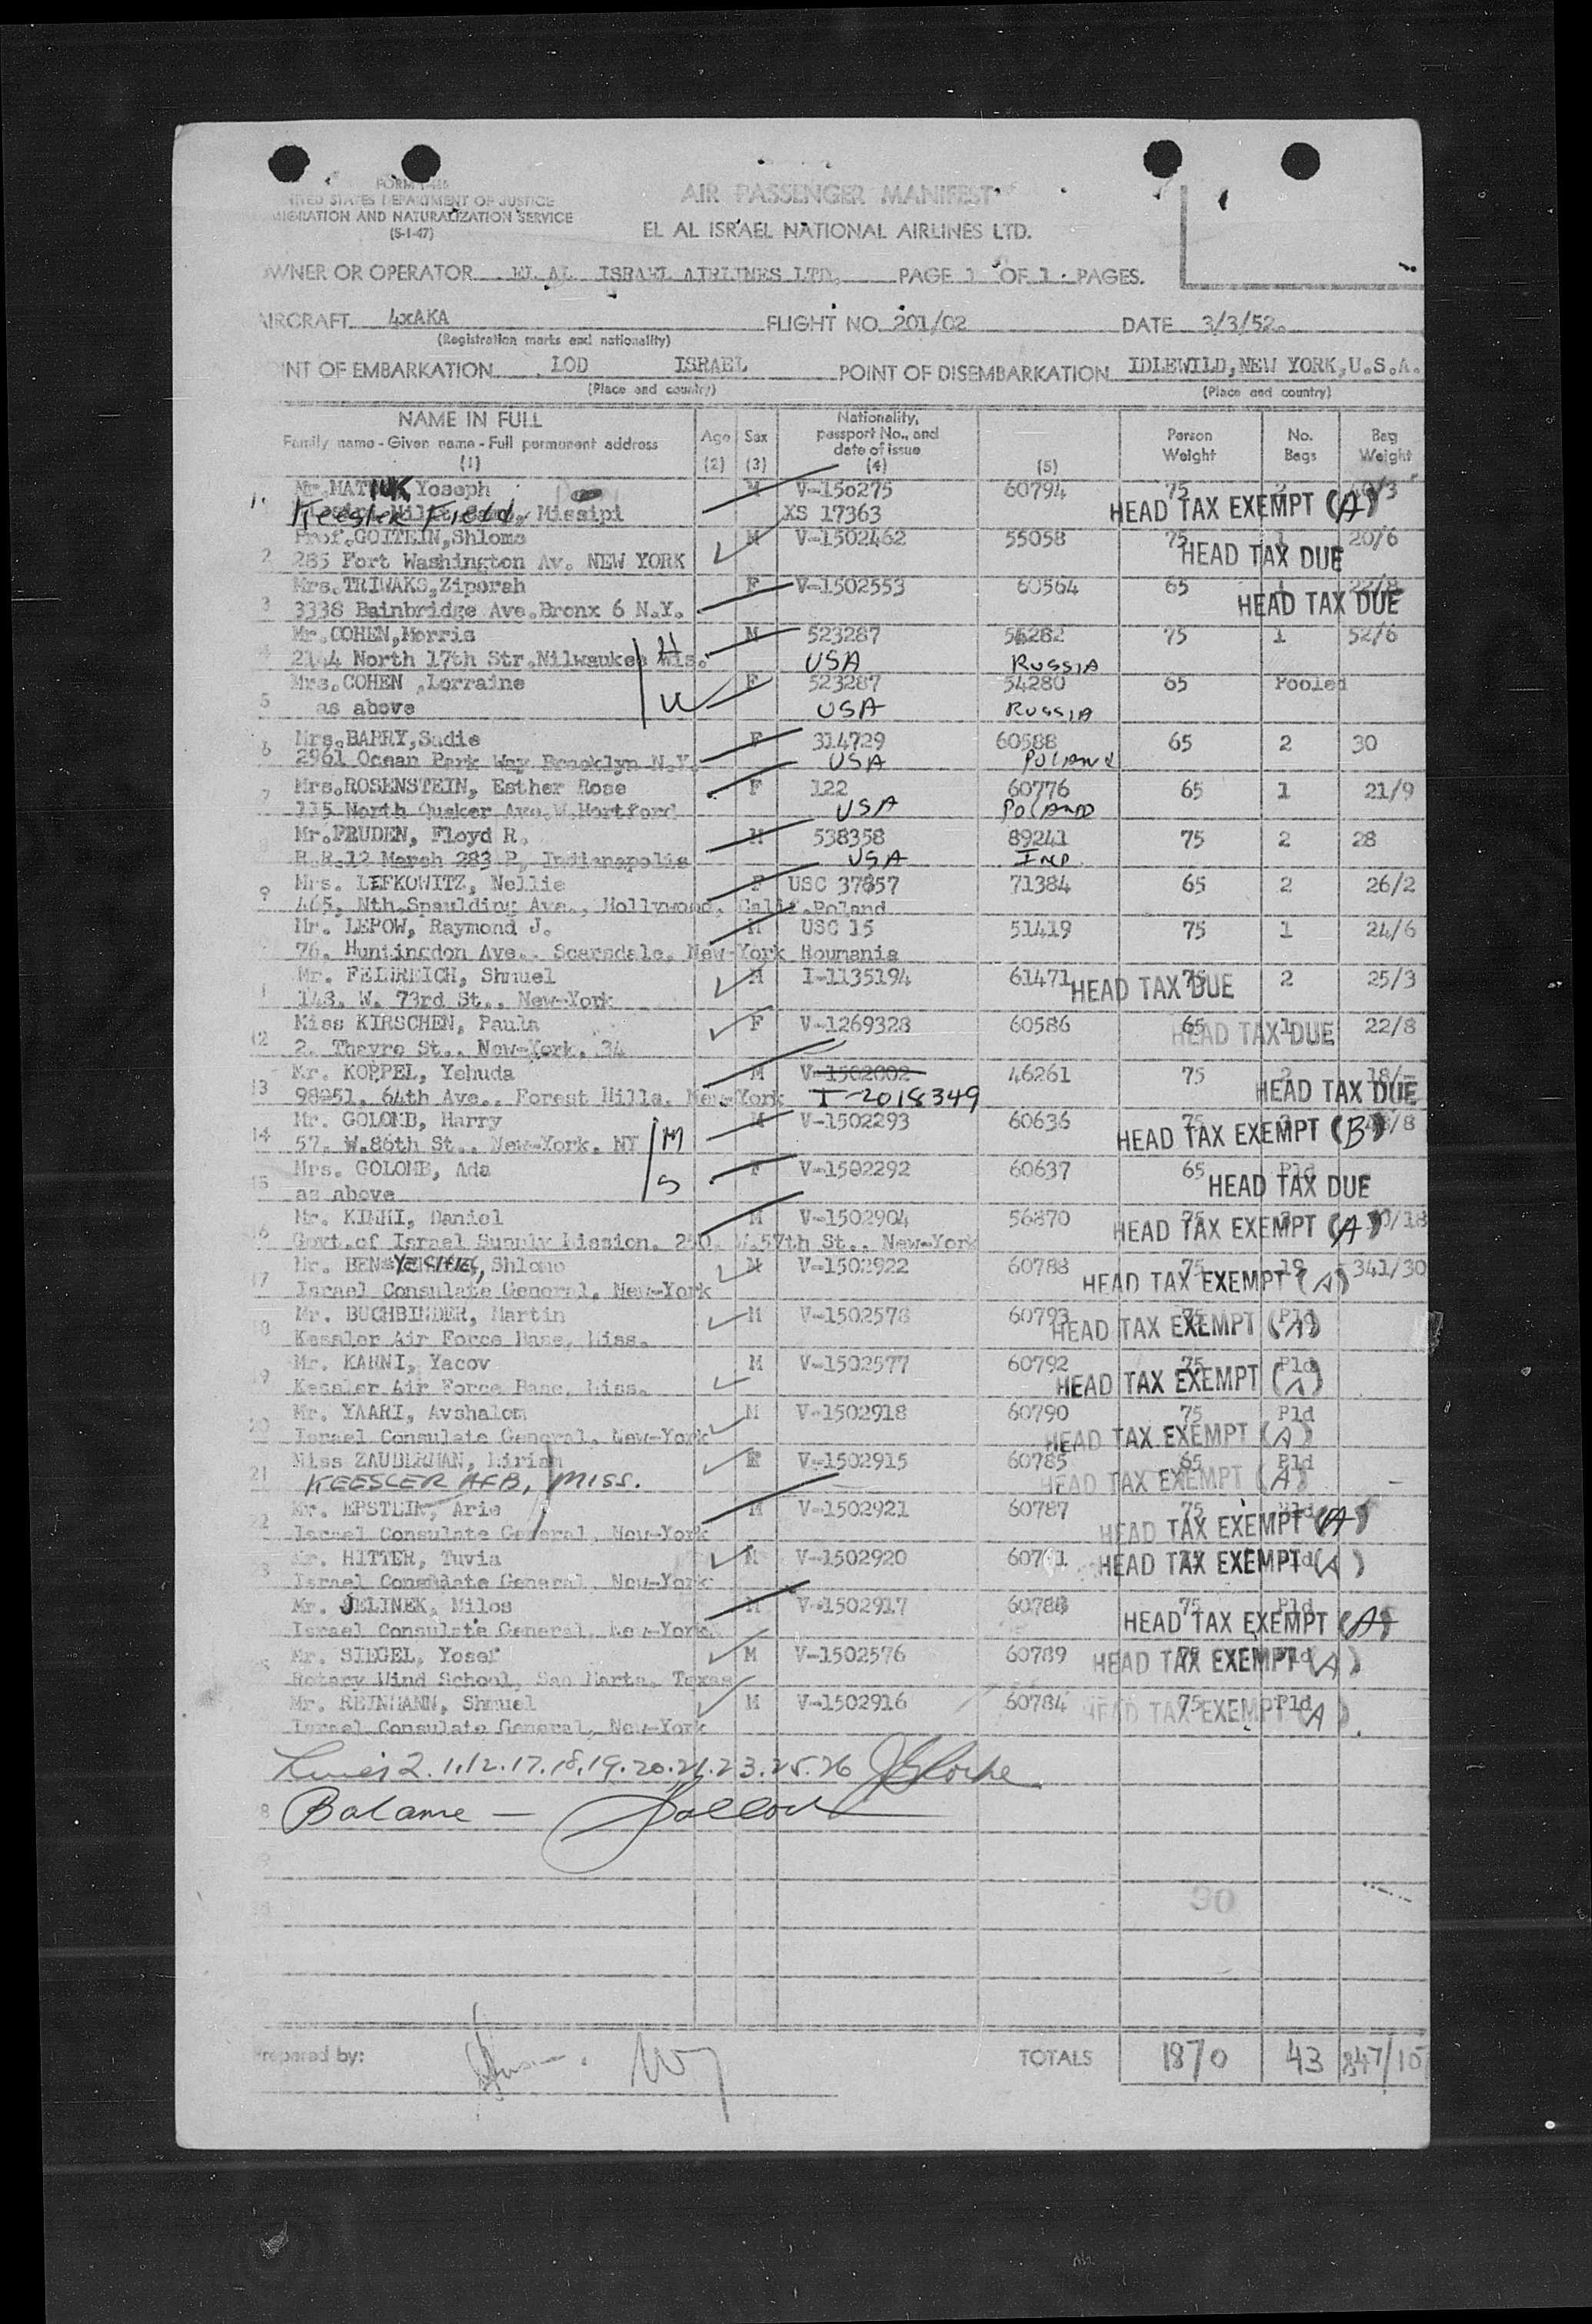 FORM I-466
UNITED STATES DEPARTMENT OF JUSTICE
IMMIGRATION AND NATURALIZATION SERVICE
(5-1-47)
AIR PASSENGER MANIFEST
EL AL ISRAEL NATIONAL AIRLINES LTD.
OWNER OR OPERATOR EL AL ISRAEL AIRLINES LTD. PAGE 1 OF 1 PAGES.
AIRCRAFT 4xAKA FLIGHT NO. 201/02 DATE 3/3/52.
(Registration marks and nationality)
POINT OF EMBARKATION LOD ISRAEL POINT OF DISEMBARKATION IDLEWILD, NEW YORK, U.S.A.
(Place and country) (Place and country)
NAME IN FULL Family name - Given name - Full permanent address (1) Age (2) Sex (3) Nationality, passport No., and date of issue (4) (5) Person Weight No. Bags Bag Weight
1. Mr. MATNUK, Yoseph M V-150275 60794 75
Keesler Field, Missipi XS 17363 HEAD TAX EXEMPT (A)
Prof. GOITEIN, Shlomo M V-1502462 55058 75 1 20/6
2 285 Fort Washington Av. NEW YORK HEAD TAX DUE
Mrs. TRIWAKS, Ziporah F V-1502553 60564 65 1 22/8
3 3338 Bainbridge Ave. Bronx 6 N.Y. HEAD TAX DUE
Mr. COHEN, Morris M 523287 54282 75 1 52/6
4 2144 North 17th Str. Nilwaukee Wis. H USA RUSSIA
Mrs. COHEN, Lorraine F 523287 54280 65 Pooled
5 as above W USA RUSSIA
Mrs. BARRY, Sadie F 314729 60588 65 2 30
6 2961 Ocean Park Way Brooklyn N.Y. USA POLAND
Mrs. ROSENSTEIN, Esther Rose F 122 60776 65 1 21/9
7 115 North Quaker Ave. W. Hortford USA POLAND
Mr. PRUDEN, Floyd R. M 538358 89241 75 2 28
8 R.R.12 Marsh 283 P, Indianapolis USA IND.
Mrs. LEFKOWITZ, Nellie F USC 37857 71384 65 2 26/2
9 465, Nth. Spaulding Ave., Hollywood, Calif. Poland
Mr. LEPOW, Raymond J. M USC 15 51419 75 1 24/6
76, Huntingdon Ave., Scarsdale, New-York Roumania
Mr. FELDREICH, Shmuel M I-1135194 61471 75 2 25/3
148, W. 73rd St., New-York HEAD TAX DUE
Miss KIRSCHEN, Paula F V-1269328 60586 65 1 22/8
12 2, Thayre St., New-York, 34 HEAD TAX DUE
Mr. KOPPEL, Yehuda M V-1502002 46261 75 2 18/-
13 98251, 64th Ave., Forest Hills, New-York I-2018349 HEAD TAX DUE
Mr. GOLOMB, Harry M V-1502293 60636 75
14 57, W.86th St., New-York, NY M HEAD TAX EXEMPT (B)
Mrs. GOLOMB, Ada F V-1502292 60637 65 Pld
15 as above S HEAD TAX DUE
Mr. KIMHI, Daniel M V-1502904 56870 75
16 Govt. of Israel Supply Mission, 250, W.57th St., New-York HEAD TAX EXEMPT (A)
Mr. BEN Shlomo M V-1502922 60788 75 19 341/30
17 Israel Consulate General, New-York HEAD TAX EXEMPT (A)
Mr. BUCHBINDER, Martin M V-1502578 60793 75 Pld
18 Kessler Air Force Base, Miss. HEAD TAX EXEMPT (A)
Mr. KARNI, Yacov M V-1502577 60792 75 Pld
19 Kessler Air Force Base, Miss. HEAD TAX EXEMPT (A)
Mr. YAARI, Avshalom M V-1502918 60790 75 Pld
20 Israel Consulate General, New-York HEAD TAX EXEMPT (A)
Miss ZAUBERMAN, Miriam F V-1502915 60785 65 Pld
21 KEESLER AFB, MISS. HEAD TAX EXEMPT (A)
Mr. EPSTEIN, Arie M V-1502921 60787 75 Pld
22 Israel Consulate General, New-York HEAD TAX EXEMPT (A)
Mr. HITTER, Tuvia M V-1502920 75 Pld
Israel Consulate General, New-York HEAD TAX EXEMPT (A)
Mr. JELINEK, Milos M V-1502917 75 Pld
Israel Consulate General, New-York HEAD TAX EXEMPT (A)
Mr. SIEGEL, Yosef M V-1502576 60789 75 Pld
Rotary Wind School, San Marts, Texas HEAD TAX EXEMPT (A)
Mr. REINMANN, Shmuel M V-1502916 60784 75 Pld
Israel Consulate General, New-York HEAD TAX EXEMPT (A)
Lines 2. 11. 12. 17. 18. 19. 20. 21. 23. 25. 26
8 Balance —
30
Prepared by: TOTALS 1870 43 847/10